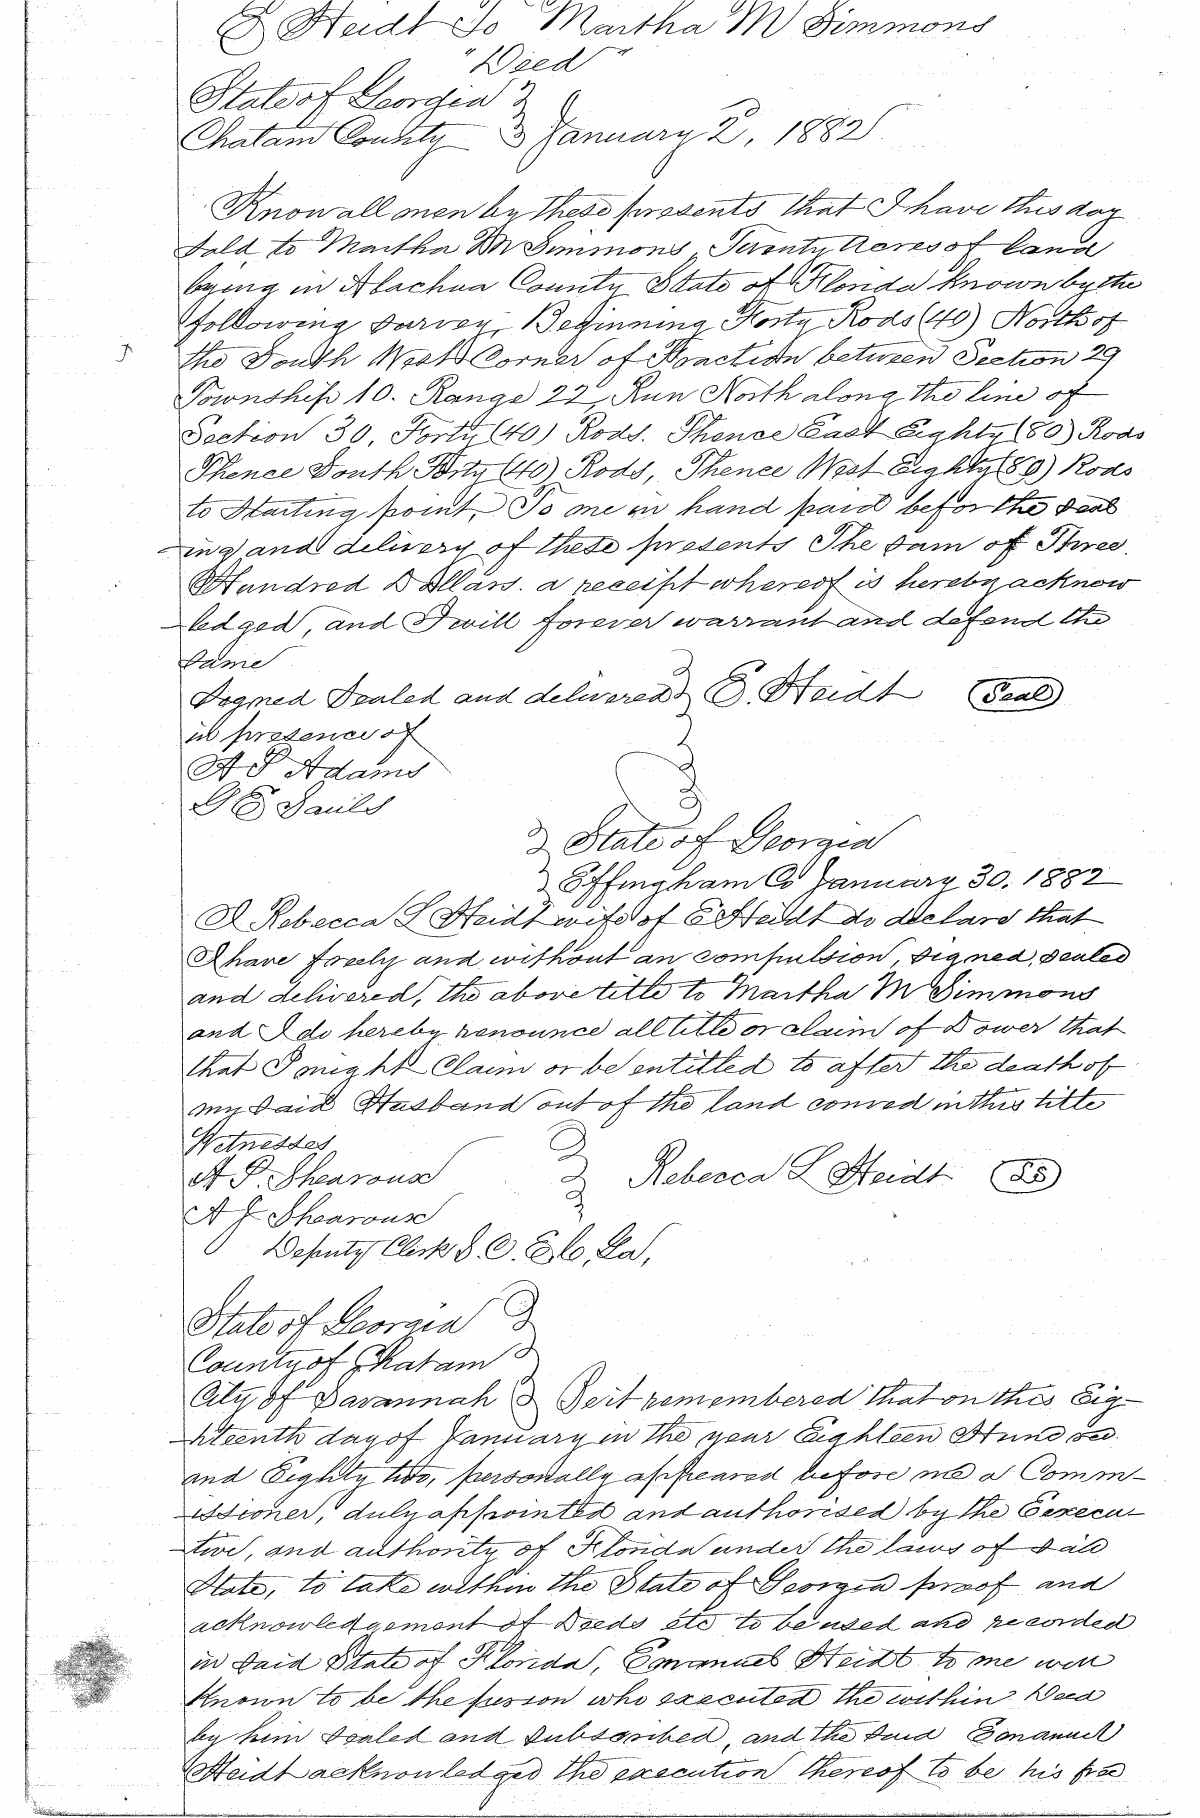 E Heidt To Martha M Simmons
"Deed"
State of Georgia
Chatam County January 2, 1882
Know all men by these presents that I have this day
Sold to Martha M Simmons, Twenty Acres of land
lying in Alachua County State of Florida known by the
following survey, Beginning Forty Rods (40) North of
the South West Corner of Fraction between Section 29
Township 10. Range 22, Run North along the line of
Section 30, Forty (40) Rods. Thence East Eighty (80) Rods
Thence South Forty (40) Rods, Thence West Eighty (80) Rods
to Starting point, To me in hand paid befor the seal
ing and delivery of these presents The sum of Three
Hundred Dollars. a receipt whereof is hereby acknow
ledged, and I will forever warrant and defend the
same
Signed Sealed and delivered E. Heidt (Seal)
in presence of
A P Adams
G E Sauls
State of Georgia
Effingham Co January 30. 1882
I Rebecca L Heidt wife of E Heidt do declare that
I have freely and without an compulsion, signed, sealed
and delivered, the above title to Martha M Simmons
and I do hereby renounce all title or claim of Dower that
that I might Claim or be entitled to after the death of
my said Husband out of the land conved in this title
Witnesses
A P. Shearouse Rebecca L Heidt (LS)
A J Shearouse
Deputy Clerk S. C. E. Co, Ga,
State of Georgia
County of Chatam
City of Savannah Be it remembered that on this Eig-
hteenth day of January in the year Eighteen Hundred
and Eighty two, personally appeared before me a Comm-
issioner, duly appointed and authorised by the Execu-
tive, and authority of Florida under the laws of said
State, to take within the State of Georgia proof and
acknowledgement of Deeds etc to be used and recorded
in said State of Florida, Emanuel Heidt to me well
known to be the person who executed the within Deed
by him sealed and subscribed, and the said Emanuel
Heidt acknowledged the execution thereof to be his free